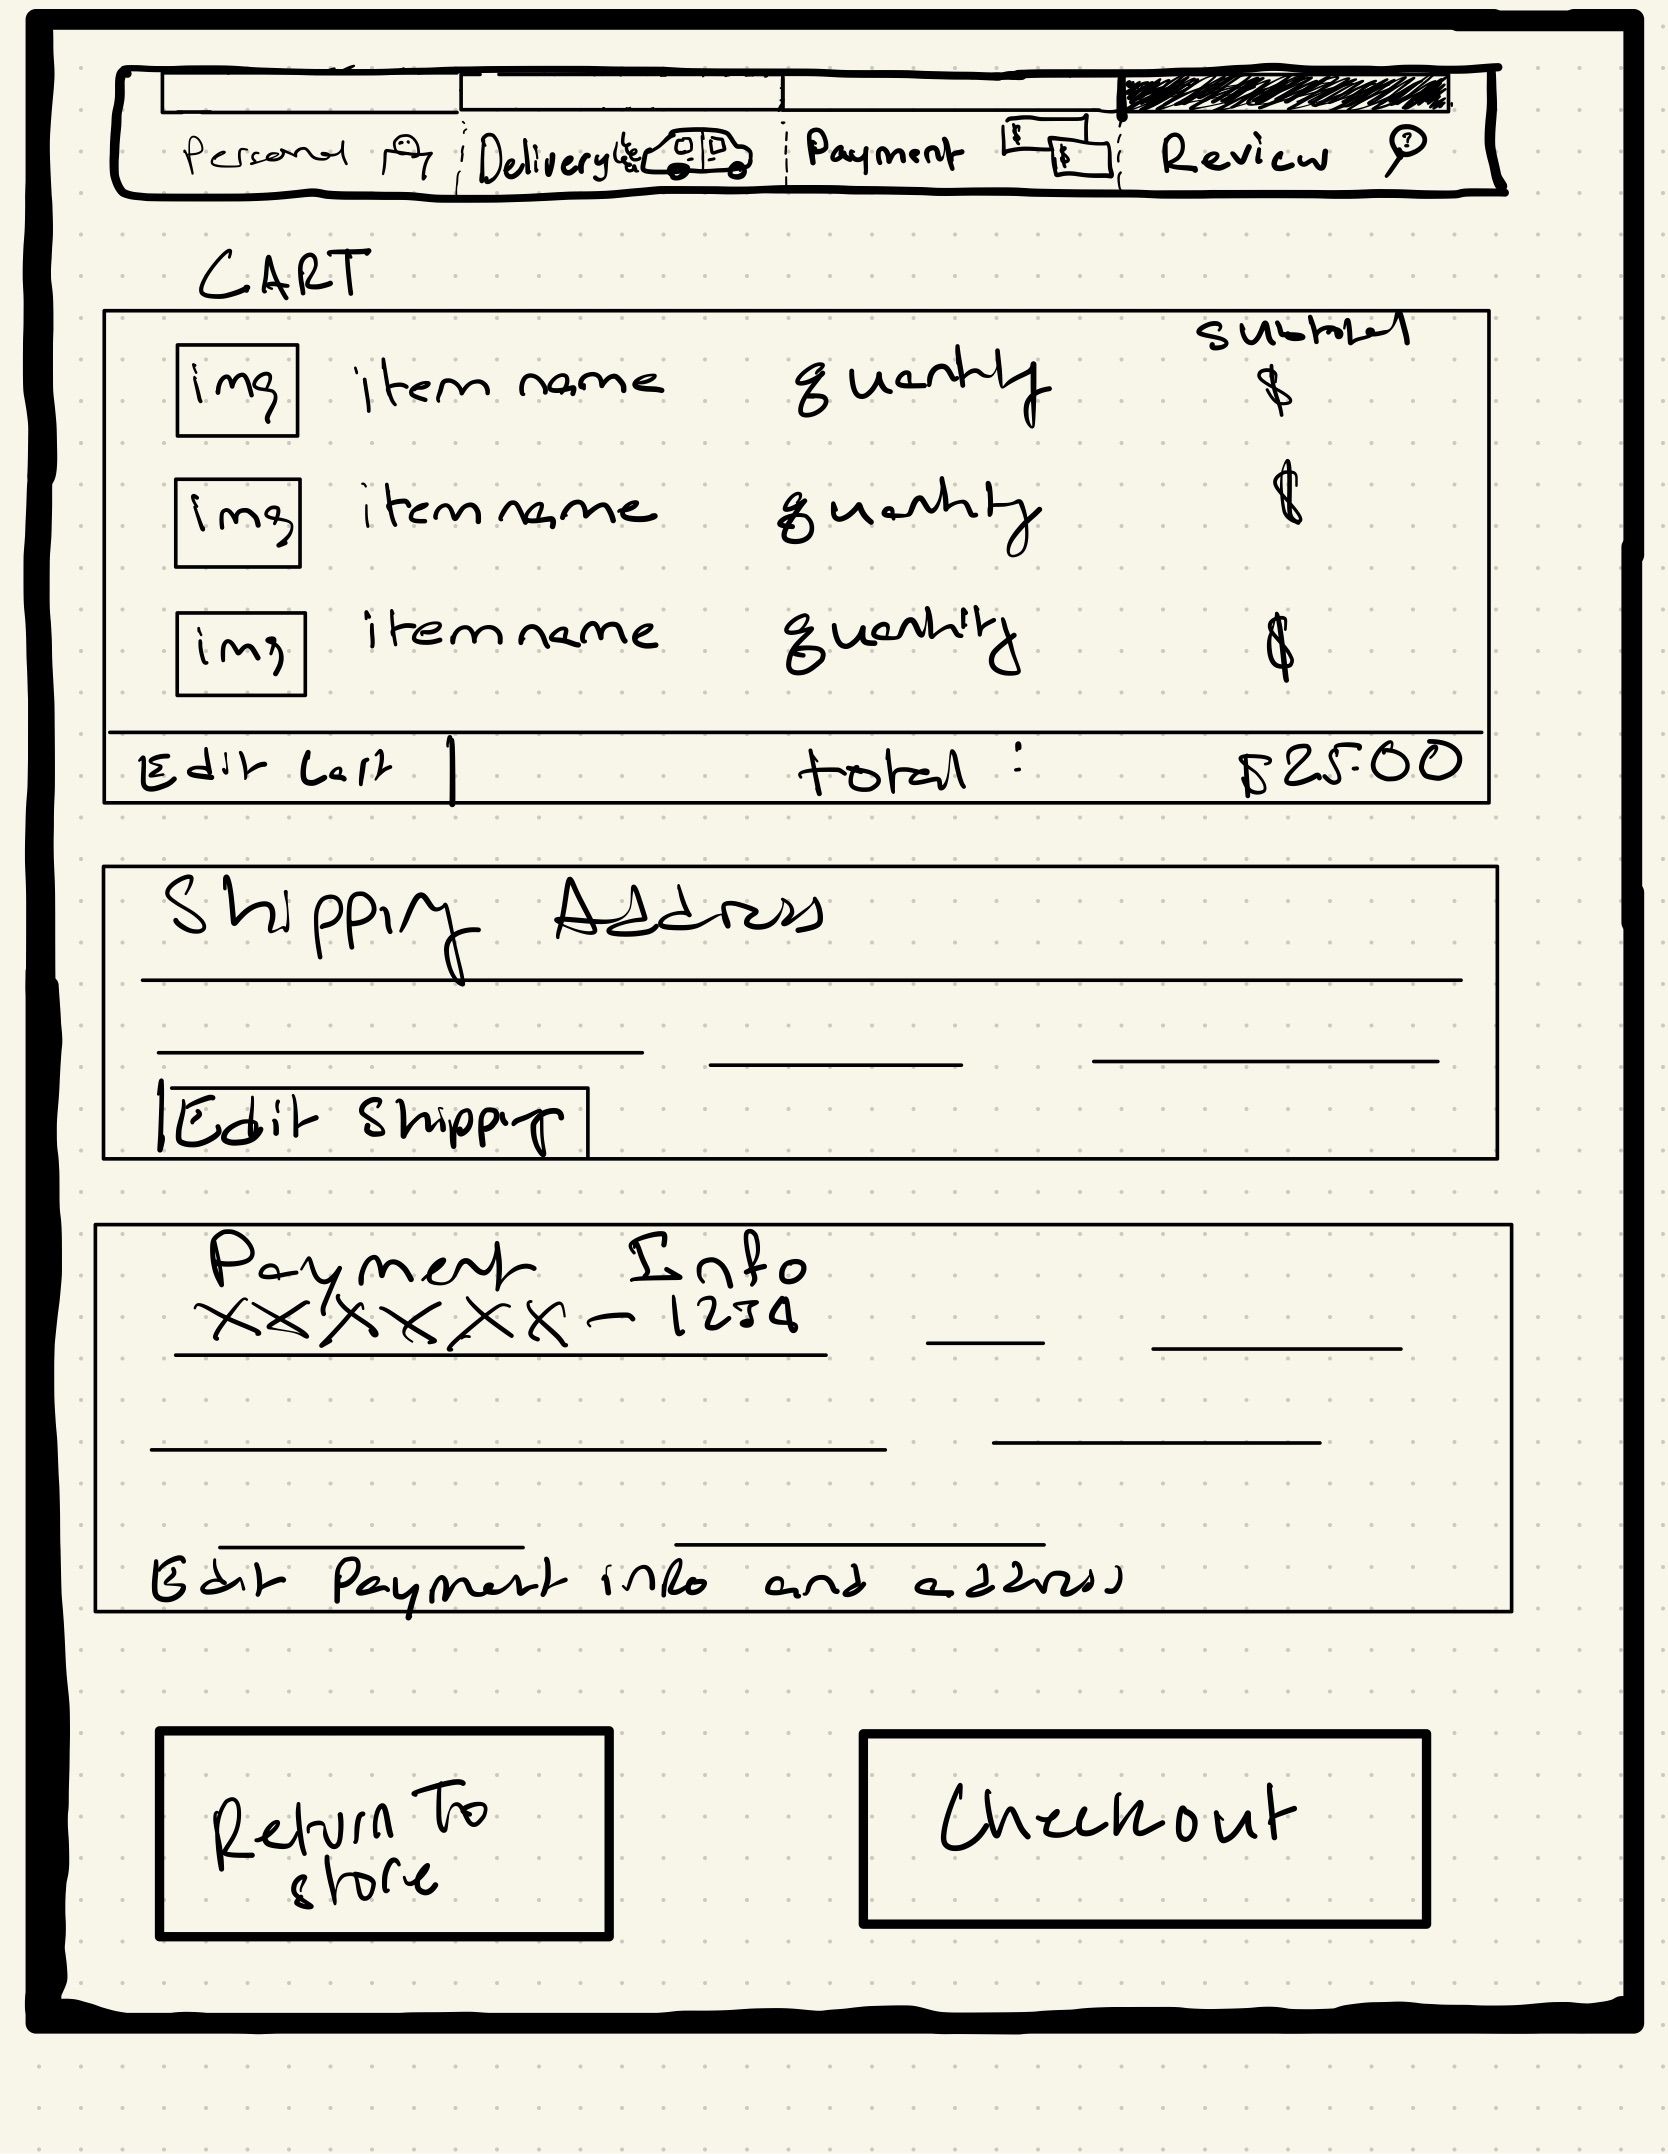 Personal Delivery Payment $ $ Review ?
CART
subtotal
img item name quantity $
img item name quantity $
img item name quantity $
Edit Cart total : $25.00
Shipping Address
Edit Shipping
Payment Info
XXXXXX-1234
Edit Payment info and address
Return To
store
Checkout